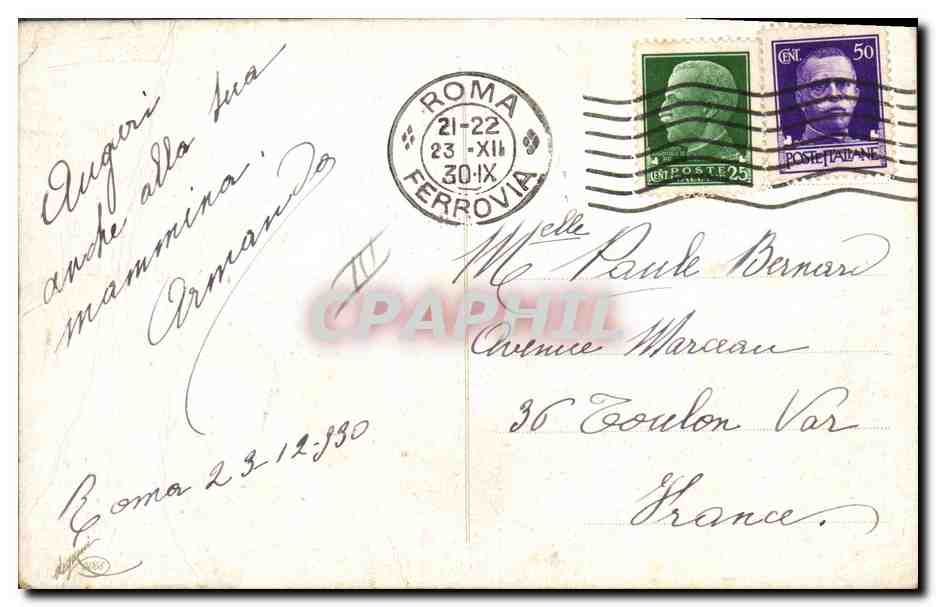 Auguri
anche alla sua
mammina.
Armando
Roma 23-12-930
III
ROMA
21-22
23-XII
30.IX
FERROVIA
CENT POSTE 25
CENT. 50
POSTE ITALIANE
Melle Paule Bernard
Avenue Marceau
36 Toulon Var
France.
CPAPHIL